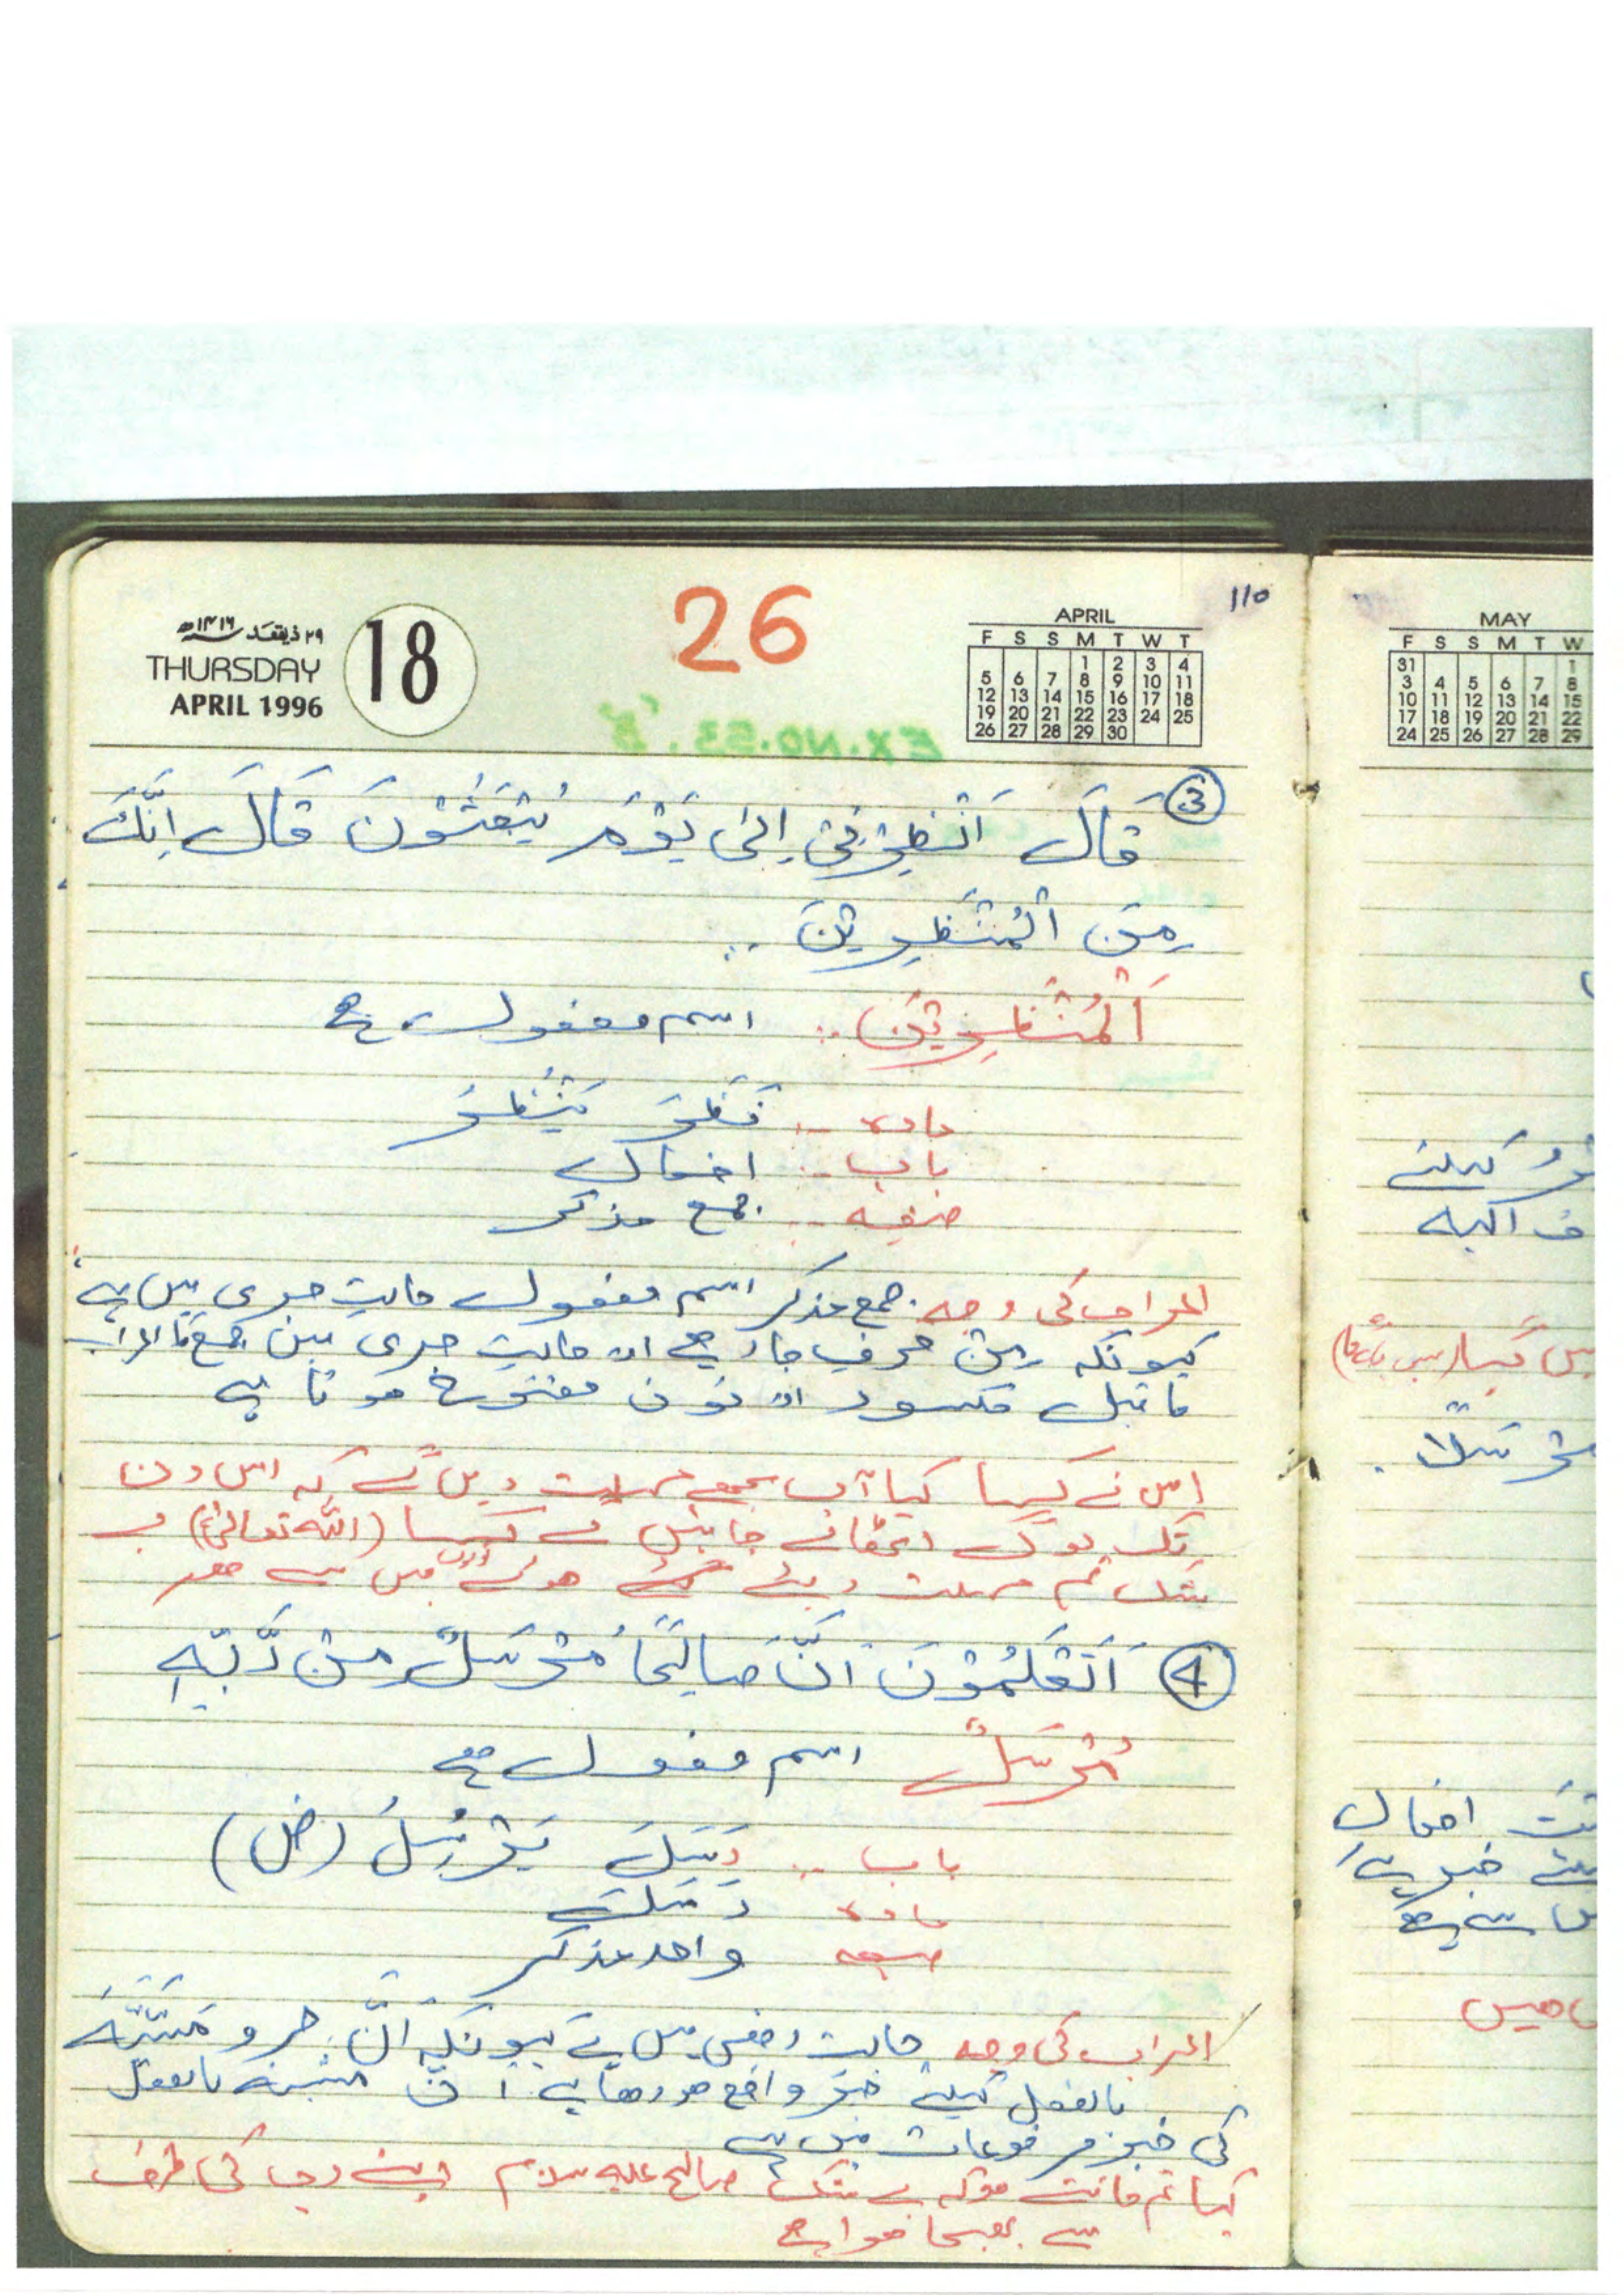 110
26
۲۹ ذیقعد ۱۴۱۶ھ
THURSDAY
APRIL 1996
18
APRIL
F S S M T W T
1 2 3 4
5 6 7 8 9 10 11
12 13 14 15 16 17 18
19 20 21 22 23 24 25
26 27 28 29 30
EX.NO.53.
③ قَالَ اَنْظِرْنِیْ اِلٰی یَوْمِ یُبْعَثُوْنَ قَالَ اِنَّكَ
مِنَ الْمُنْظَرِیْنَ ..
اَلْمُنْظَرِیْنَ .. اسم مفعول ہے
مادہ .. نَظَرَ یَنْظُرُ
باب .. افعال
صیغہ .. جمع مذکر
اعراب کی وجہ. جمع مذکر اسم مفعول حالیتِ جری میں ہے
کیونکہ مِنْ حرفِ جار ہے اور حالیتِ جری میں جمع کا اعراب
ماقبل مکسور اور نون مفتوح ہوتا ہے
اس نے کہا کیا آپ مجھے مہلت دیں گے کہ اس دن
تک لوگ اٹھائے جائیں گے کہا (اللّٰہ تعالیٰ) بے
شک تم مہلت دیئے گئے ہوئے لوگوں میں سے ہو
④ اَتَعْلَمُوْنَ اَنَّ صَالِحًا مُّرْسَلٌ مِّنْ رَّبِّهٖ
مُرْسَلٌ اسم مفعول ہے
باب .. رَسَلَ یَرْسِلُ (ض)
مادہ رسل
صیغہ واحد مذکر
اعراب کی وجہ حالت رفعی میں ہے کیونکہ اَنَّ حرو مشبّہ
بالفعل کیلئے خبر واقع ہو رہا ہے اَنَّ مشبہ بالفعل
کی خبر مرفوعات میں ہے
کیا تم جانتے ہو کہ بے شک صالح علیہ سلام اپنے رب کی طرف
سے بھیجا ہوا ہے
MAY
F S S M T W
31 1
3 4 5 6 7 8
10 11 12 13 14 15
17 18 19 20 21 22
24 25 26 27 28 29
کیلئے
افعال